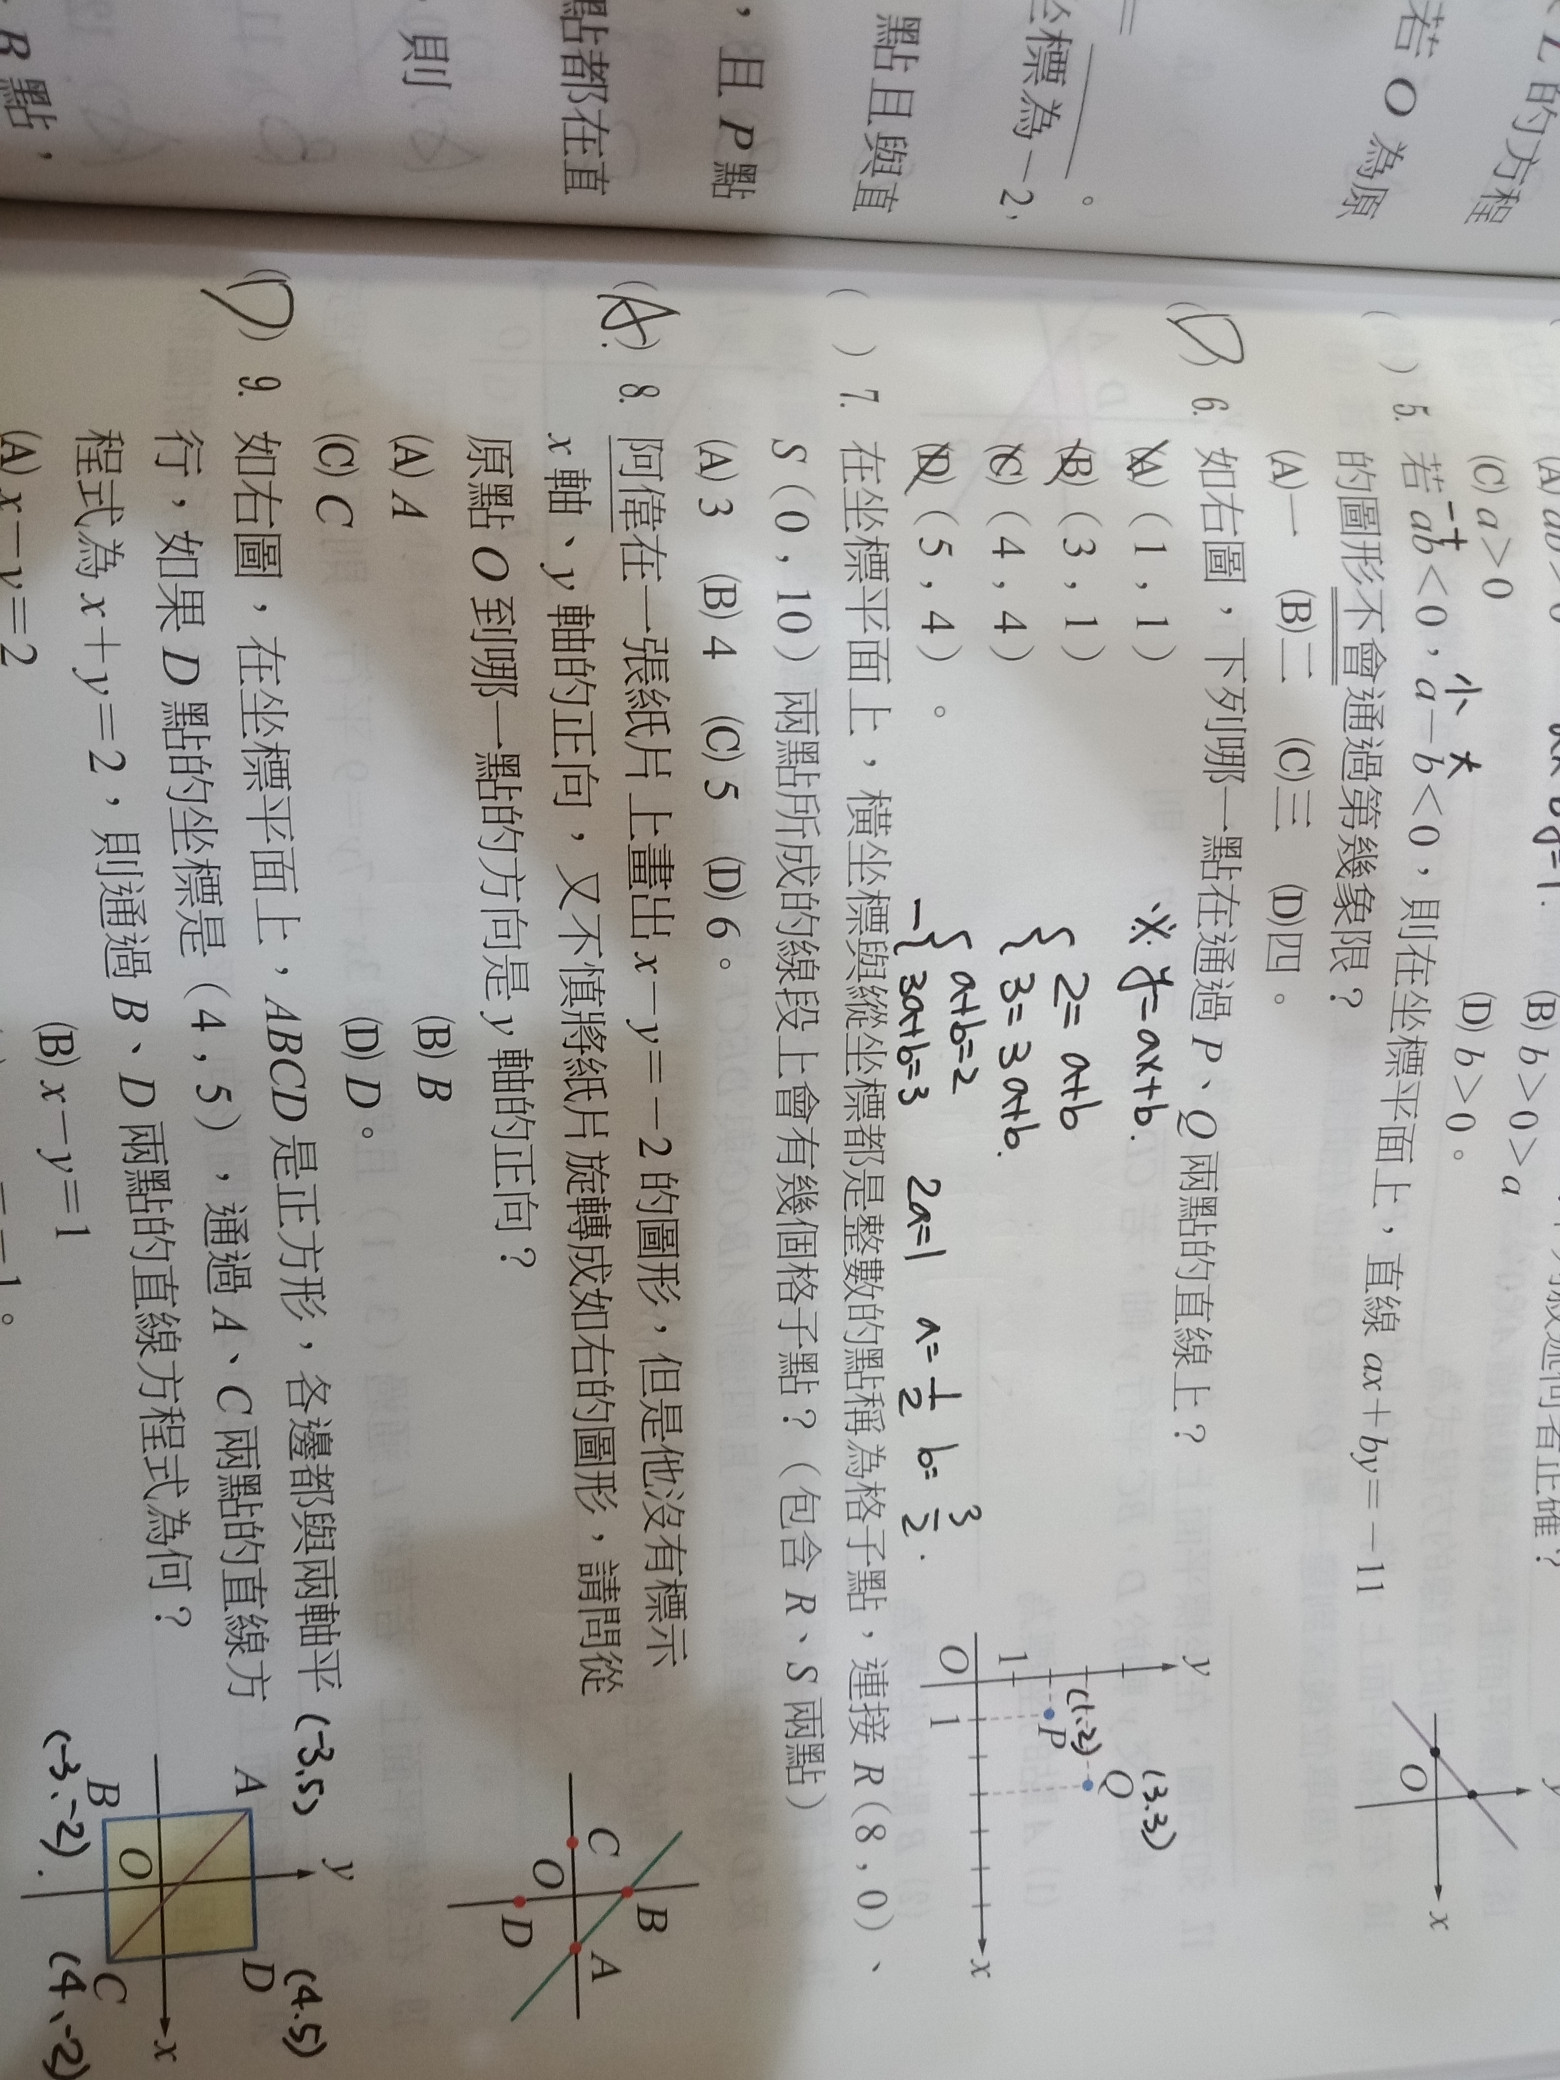 L 的方程
若 O 為原
坐標為－2,
點且與直
，且 P 點
點都在直
，則
B 點，
(B) b＞0＞a
(C) a＞0
(D) b＞0。
( ) 5. 若 ab＜0，a－b＜0，則在坐標平面上，直線 ax＋by＝－11
－＋
小 大
的圖形不會通過第幾象限？
(A)一 (B)二 (C)三 (D)四。
y
O
x
(D) 6. 如右圖，下列哪一點在通過 P、Q 兩點的直線上？
(A)（1 , 1）
(B)（3 , 1）
(C)（4 , 4）
(D)（5 , 4）。
※ y=ax+b.
2=a+b
3=3a+b.
a+b=2
－ 3a+b=3
2a=1 a=1/2 b=3/2.
y
(3,3)
Q
(1,2)
P
1
O 1
x
( ) 7. 在坐標平面上，橫坐標與縱坐標都是整數的點稱為格子點，連接 R（8 , 0）、
S（0 , 10）兩點所成的線段上會有幾個格子點？（包含 R、S 兩點）
(A) 3 (B) 4 (C) 5 (D) 6。
(A) 8. 阿偉在一張紙片上畫出 x－y＝－2 的圖形，但是他沒有標示
x 軸、y 軸的正向，又不慎將紙片旋轉成如右的圖形，請問從
原點 O 到哪一點的方向是 y 軸的正向？
(A) A (B) B
(C) C (D) D。
B
C
O
A
D
(D) 9. 如右圖，在坐標平面上，ABCD 是正方形，各邊都與兩軸平
行，如果 D 點的坐標是（4 , 5），通過 A、C 兩點的直線方
程式為 x＋y＝2，則通過 B、D 兩點的直線方程式為何？
(A) x－y＝2 (B) x－y＝1
(-3,5)
y
(4,5)
A
D
O
x
B
C
(-3,-2).
(4,-2)